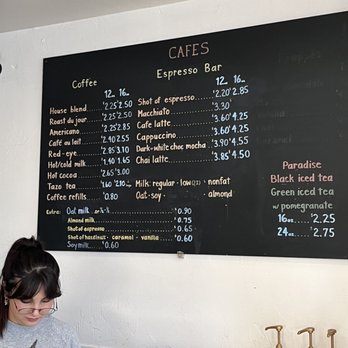 CAFES
Coffee
12oz 16oz
House blend $2.25 2.50
Roast du jour $2.25 2.50
Americano $2.25 2.85
Café au lait $2.40 2.55
Red-eye $2.95 3.10
Hot/cold milk $1.40 1.65
Hot cocoa $2.65 3.00
Tazo tea $1.60 2.10
Coffee refills $0.80
Espresso Bar
12oz 16oz
Shot of espresso $2.20 2.85
Macchiato $3.30
Cafe latte $3.60 4.25
Cappuccino $3.60 4.25
Dark+white choc mocha $3.90 4.55
Chai latte $3.85 4.50
Milk: regular · low · nonfat
Oat · soy almond
Extra:
Oat milk $0.90
Almond milk $0.75
Shot of espresso $0.65
Shot of hazelnut · caramel · vanilla $0.60
Soy milk $0.60
Paradise
Black iced tea
Green iced tea
w/ pomegranate
16oz $2.25
24oz $2.75